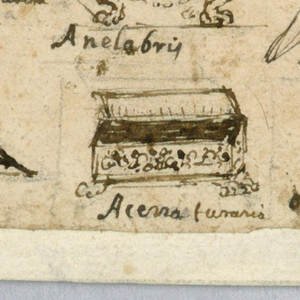 Anclabrij
Acerra turaria